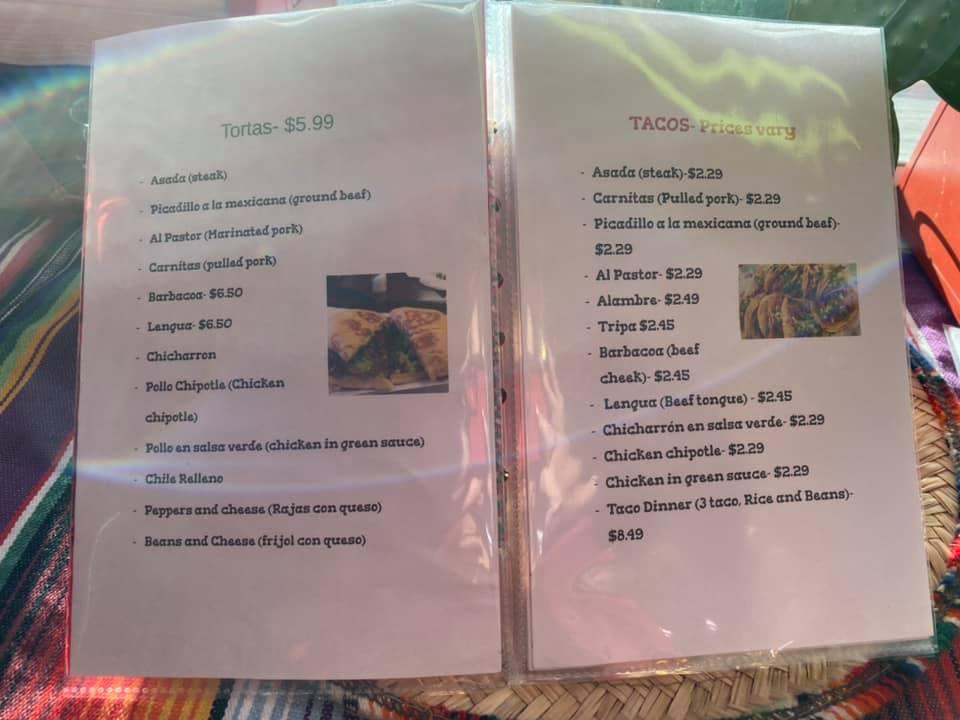 Tortas- $5.99
- Asada (steak)
- Picadillo a la mexicana (ground beef)
- Al Pastor (Marinated pork)
- Carnitas (pulled pork)
- Barbacoa- $6.50
- Lengua- $6.50
- Chicharron
- Pollo Chipotle (Chicken
chipotle)
- Pollo en salsa verde (chicken in green sauce)
- Chile Relleno
- Peppers and cheese (Rajas con queso)
- Beans and Cheese (frijol con queso)
TACOS- Prices vary
- Asada (steak)-$2.29
- Carnitas (Pulled pork)- $2.29
- Picadillo a la mexicana (ground beef)-
$2.29
- Al Pastor- $2.29
- Alambre- $2.49
- Tripa $2.45
- Barbacoa (beef
cheek)- $2.45
- Lengua (Beef tongue) - $2.45
- Chicharrón en salsa verde- $2.29
- Chicken chipotle- $2.29
- Chicken in green sauce- $2.29
- Taco Dinner (3 taco, Rice and Beans)-
$8.49